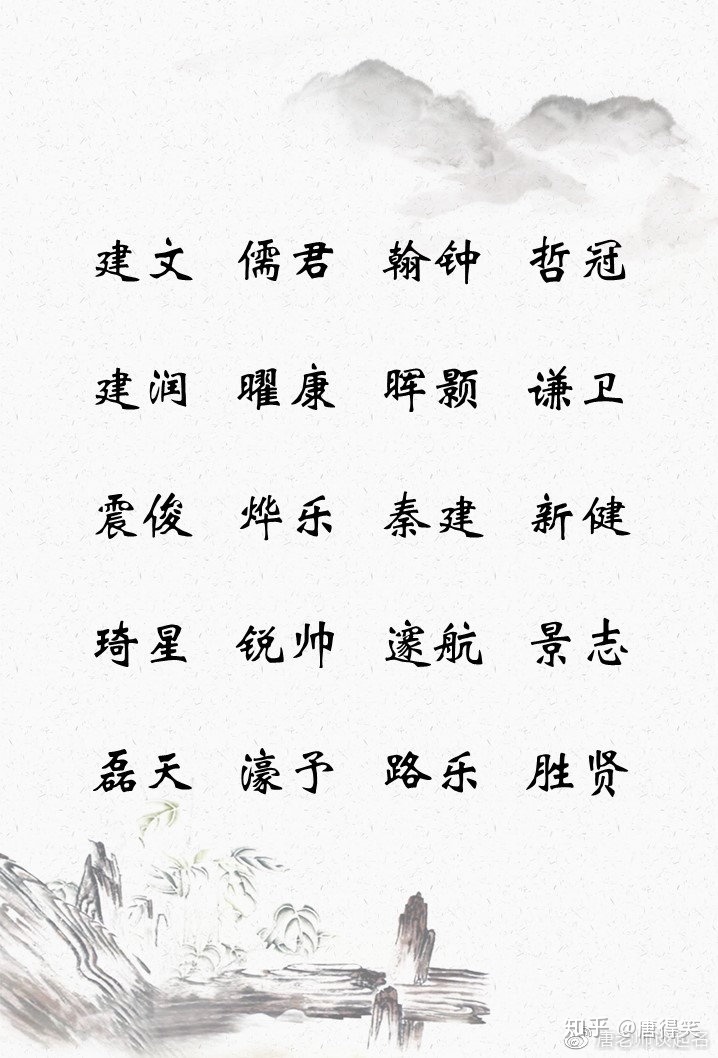 建文 儒君 翰钟 哲冠
建润 曜康 晖颢 谦卫
震俊 烨乐 秦建 新健
琦星 锐帅 邃航 景志
磊天 濠予 路乐 胜贤
知乎 @唐得失